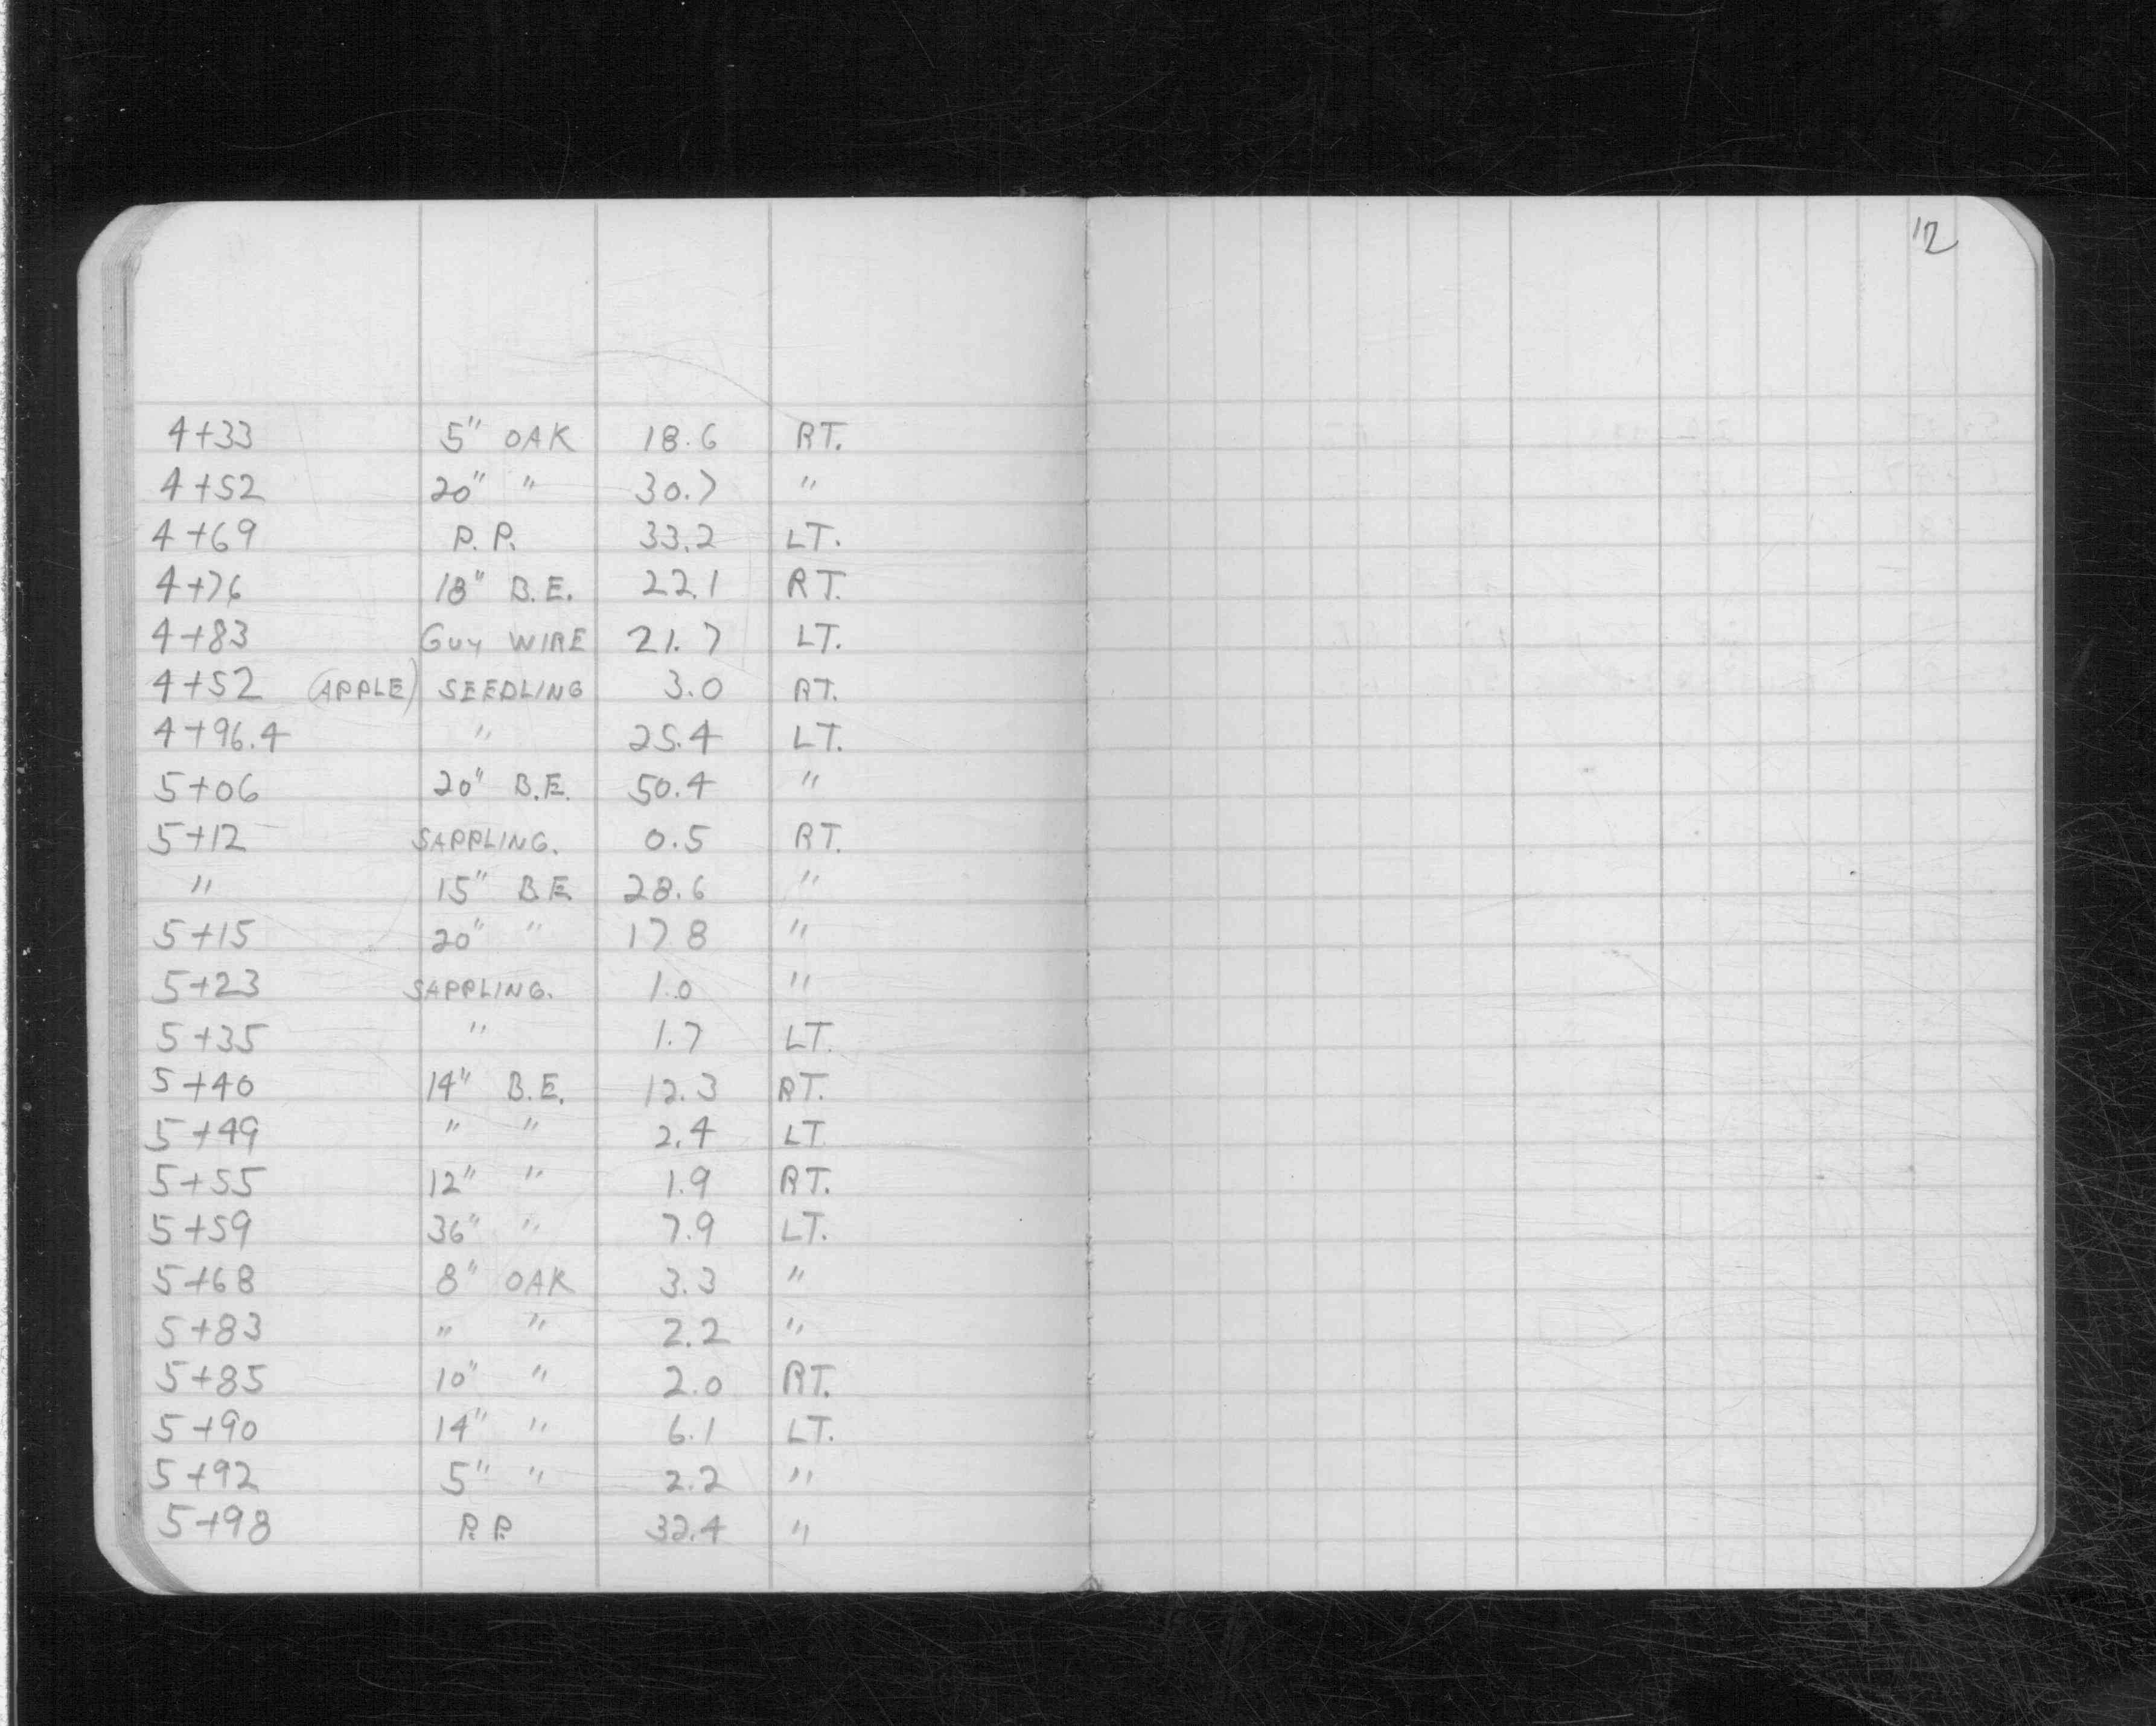 12
4+33 5" OAK 18.6 RT.
4+52 20" " 30.7 "
4+69 P.P. 33.2 LT.
4+76 18" B.E. 22.1 RT.
4+83 GUY WIRE 21.7 LT.
4+52 (APPLE) SEEDLING 3.0 RT.
4+96.4 " 25.4 LT.
5+06 20" B.E. 50.4 "
5+12 SAPPLING. 0.5 RT.
" 15" B.E. 28.6 "
5+15 20" " 17.8 "
5+23 SAPPLING. 1.0 "
5+35 " 1.7 LT.
5+40 14" B.E. 12.3 RT.
5+49 " " 2.4 LT
5+55 12" " 1.9 RT.
5+59 36" " 7.9 LT.
5+68 8" OAK 3.3 "
5+83 " " 2.2 "
5+85 10" " 2.0 RT.
5+90 14" " 6.1 LT.
5+92 5" " 2.2 "
5+98 P.P. 32.4 "